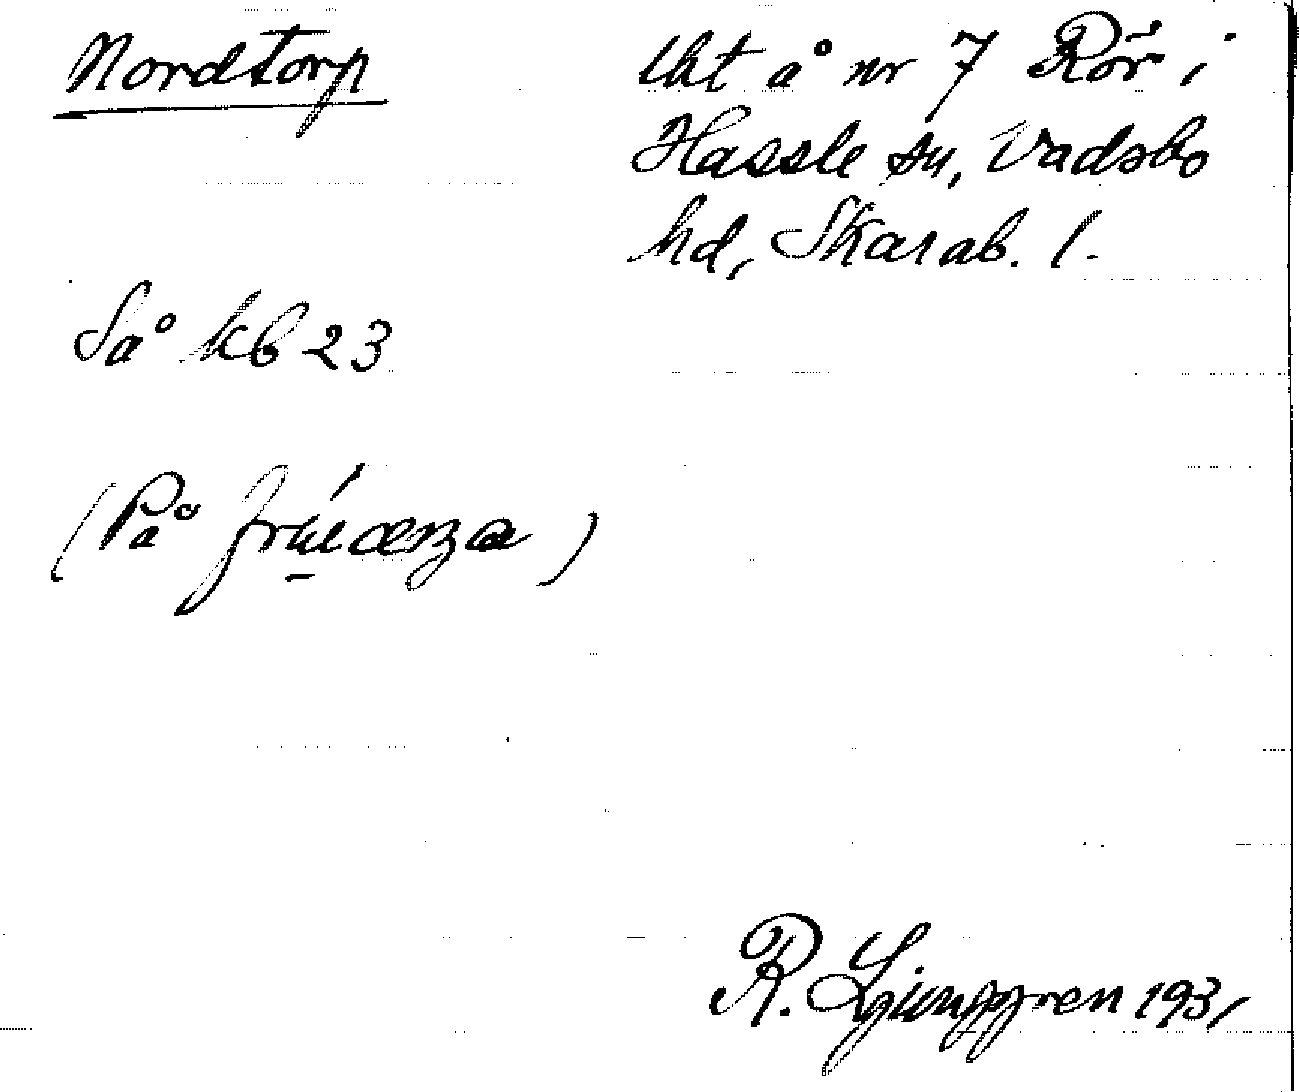 Nordtorp
lht å nr 7 Rör i
Hassle sn, Vadsbo
hd, Skarab. l.
Så kb 23
(På
R. Ljunggren 1931